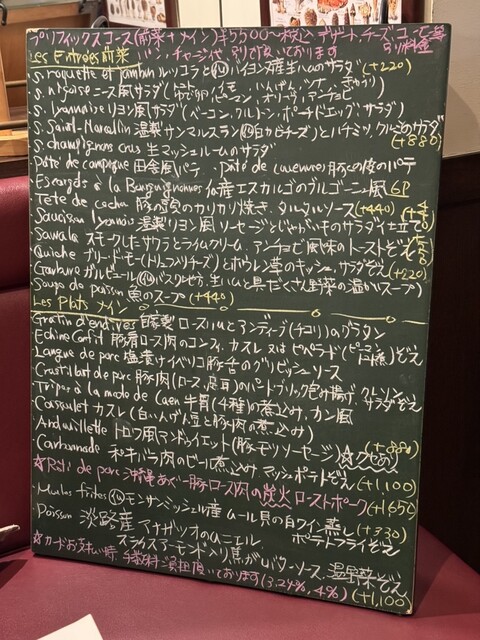 プリフィックスコース(前菜+メイン)¥5500〜税込 デザート、チーズ、コーヒー等 別料金
Les Entrées 前菜 パン、チャージ代 別で頂いております
S. roquette et jambon ルッコラと バイヨンヌ産生ハムのサラダ (+220)
S. niçoise ニース風サラダ (ゆで卵、イモ、いんげん、ツナ、きゅうり ピーマン、オリーブ、アンチョビ)
S. lyonnaise リヨン風サラダ (ベーコン、クルトン、ポーチドエッグ、サラダ)
S. Saint-Marcellin 温製 サンマルスラン (白カビチーズ)とハチミツ、クルミのサラダ (+880)
S. champignons crus 生マッシュルームのサラダ
Pâté de campagne 田舎風パテ、 Pâté de couennes 豚の皮のパテ
Escargots à la Bourguignonne 仏産エスカルゴのブルゴーニュ風 6P (+440)
Tête de cochon 豚の頭のカリカリ焼き、タルタルソース (+440)
Saucisson lyonnais 温製リヨン風ソーセージとじゃがいものサラダ仕立て
Sawala スモークしたサワラとライムクリーム、アンチョビ風味のトーストぞえ
Quiche ブリードモー(トリュフ入りチーズ)とホウレン草のキッシュ、サラダぞえ (+220)
Garbure ガルビュール バスク地方、生ハムと具だくさん野菜の温かいスープ)
Soupe de poisson 魚のスープ (+440)
Les Plats メイン
Gratin d'endives 自家製 ロースハムとアンディーブ(チコリ)のグラタン
Echine Confit 豚肩ロース肉のコンフィ、カスレ 又は ピペラード(ピーマン トマト煮)ぞえ
Langue de porc 塩漬けイベリコ豚舌のグリビッシュソース
Croustillant de porc 豚肉(ロース、足、耳)のパートブリック包み揚げ、クレソンサラダぞえ
Tripes à la mode de Caen 牛胃(4種)の煮込み、カン風
Cassoulet カスレ(白いんげん豆と豚肉の煮込み)
Andouillette トロワ風アンドゥイエット(豚モツソーセージ) ☆クセあり (+880)
Carbonnade 和牛バラ肉のビール煮込み マッシュポテトぞえ (+1,100)
☆Rôti de porc 沖縄あぐー豚ロース肉の炭火ローストポーク (+1650)
Moules frites モンサンミッシェル産 ムール貝の白ワイン蒸し ポテトフライぞえ (+330)
Poisson 淡路産 アナガツオのムニエル
スライスアーモンド入り焦がしバターソース、温野菜ぞえ (+1,100)
☆カードお支払い時、手数料 頂いております(3.24%、4%)